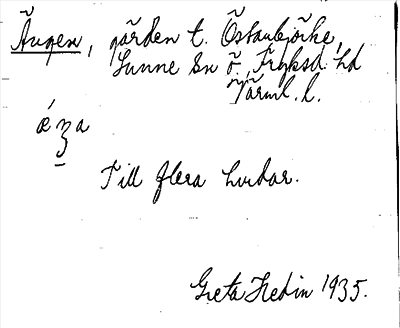 Ängen, gärden t. Östanbjörke,
Sunne sn Ö. Fryksd. hd
Värml. l.
Till flera hudar.
Greta Hedin 1935.